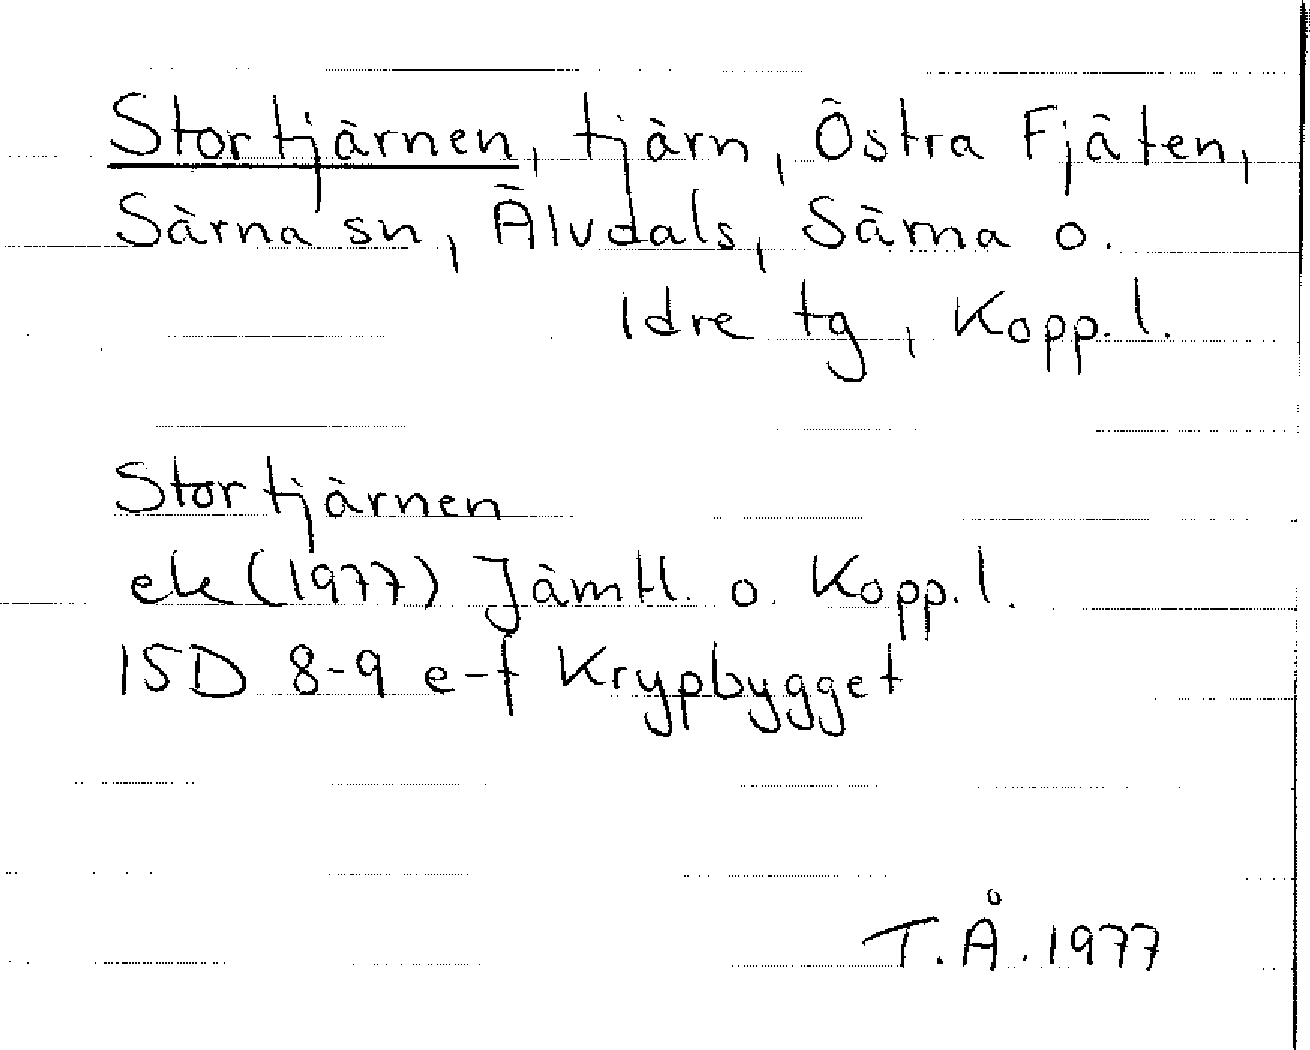 Stortjärnen, tjärn, Östra Fjäten,
Särna sn, Älvdals, Särna o.
Idre tg, Kopp. l.
Stortjärnen
ek (1977) Jämtl. o. Kopp. l.
15D 8-9 e-f Krypbygget
T. Å. 1977